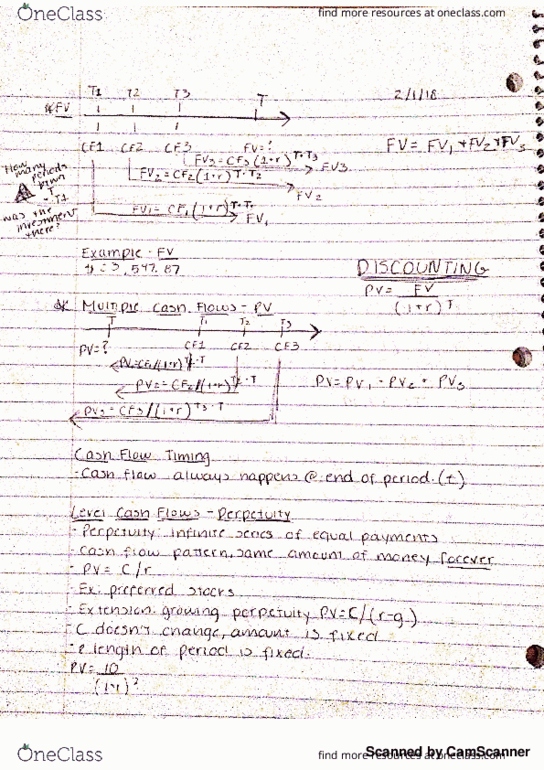 OneClass
find more resources at oneclass.com
2/1/18
T1 T2 T3 T
* FV
CF1 CF2 CF3 FV=?
FV = FV1 + FV2 + FV3
FV3 = CF3(1+r)^T-T3 FV3
FV2 = CF2(1+r)^T-T2 FV2
FV1 = CF1(1+r)^T-T1 FV1
How many periods
T - T1
was the investment there?
Example - FV
DISCOUNTING
PV = FV
(1+r)^T
* Multiple Cash Flows - PV
T T1 T2 T3
PV=? CF1 CF2 CF3
PV=CF1/(1+r)^T1-T
PV2 = CF2/(1+r)^T2-T
PV = PV1 + PV2 + PV3
PV3 = CF3/(1+r)^T3-T
Cash Flow Timing
- Cash flow always happens @ end of period (t)
Level Cash Flows - Perpetuity
- Perpetuity: infinite series of equal payments
- Cash flow pattern, same amount of money forever
- PV = C/r
- Ex: preferred stocks
- Extension: growing perpetuity PV=C/(r-g)
- C doesn't change, amount is fixed
- length of period is fixed.
PV = 10
OneClass
find more resources at oneclass.com
Scanned by CamScanner